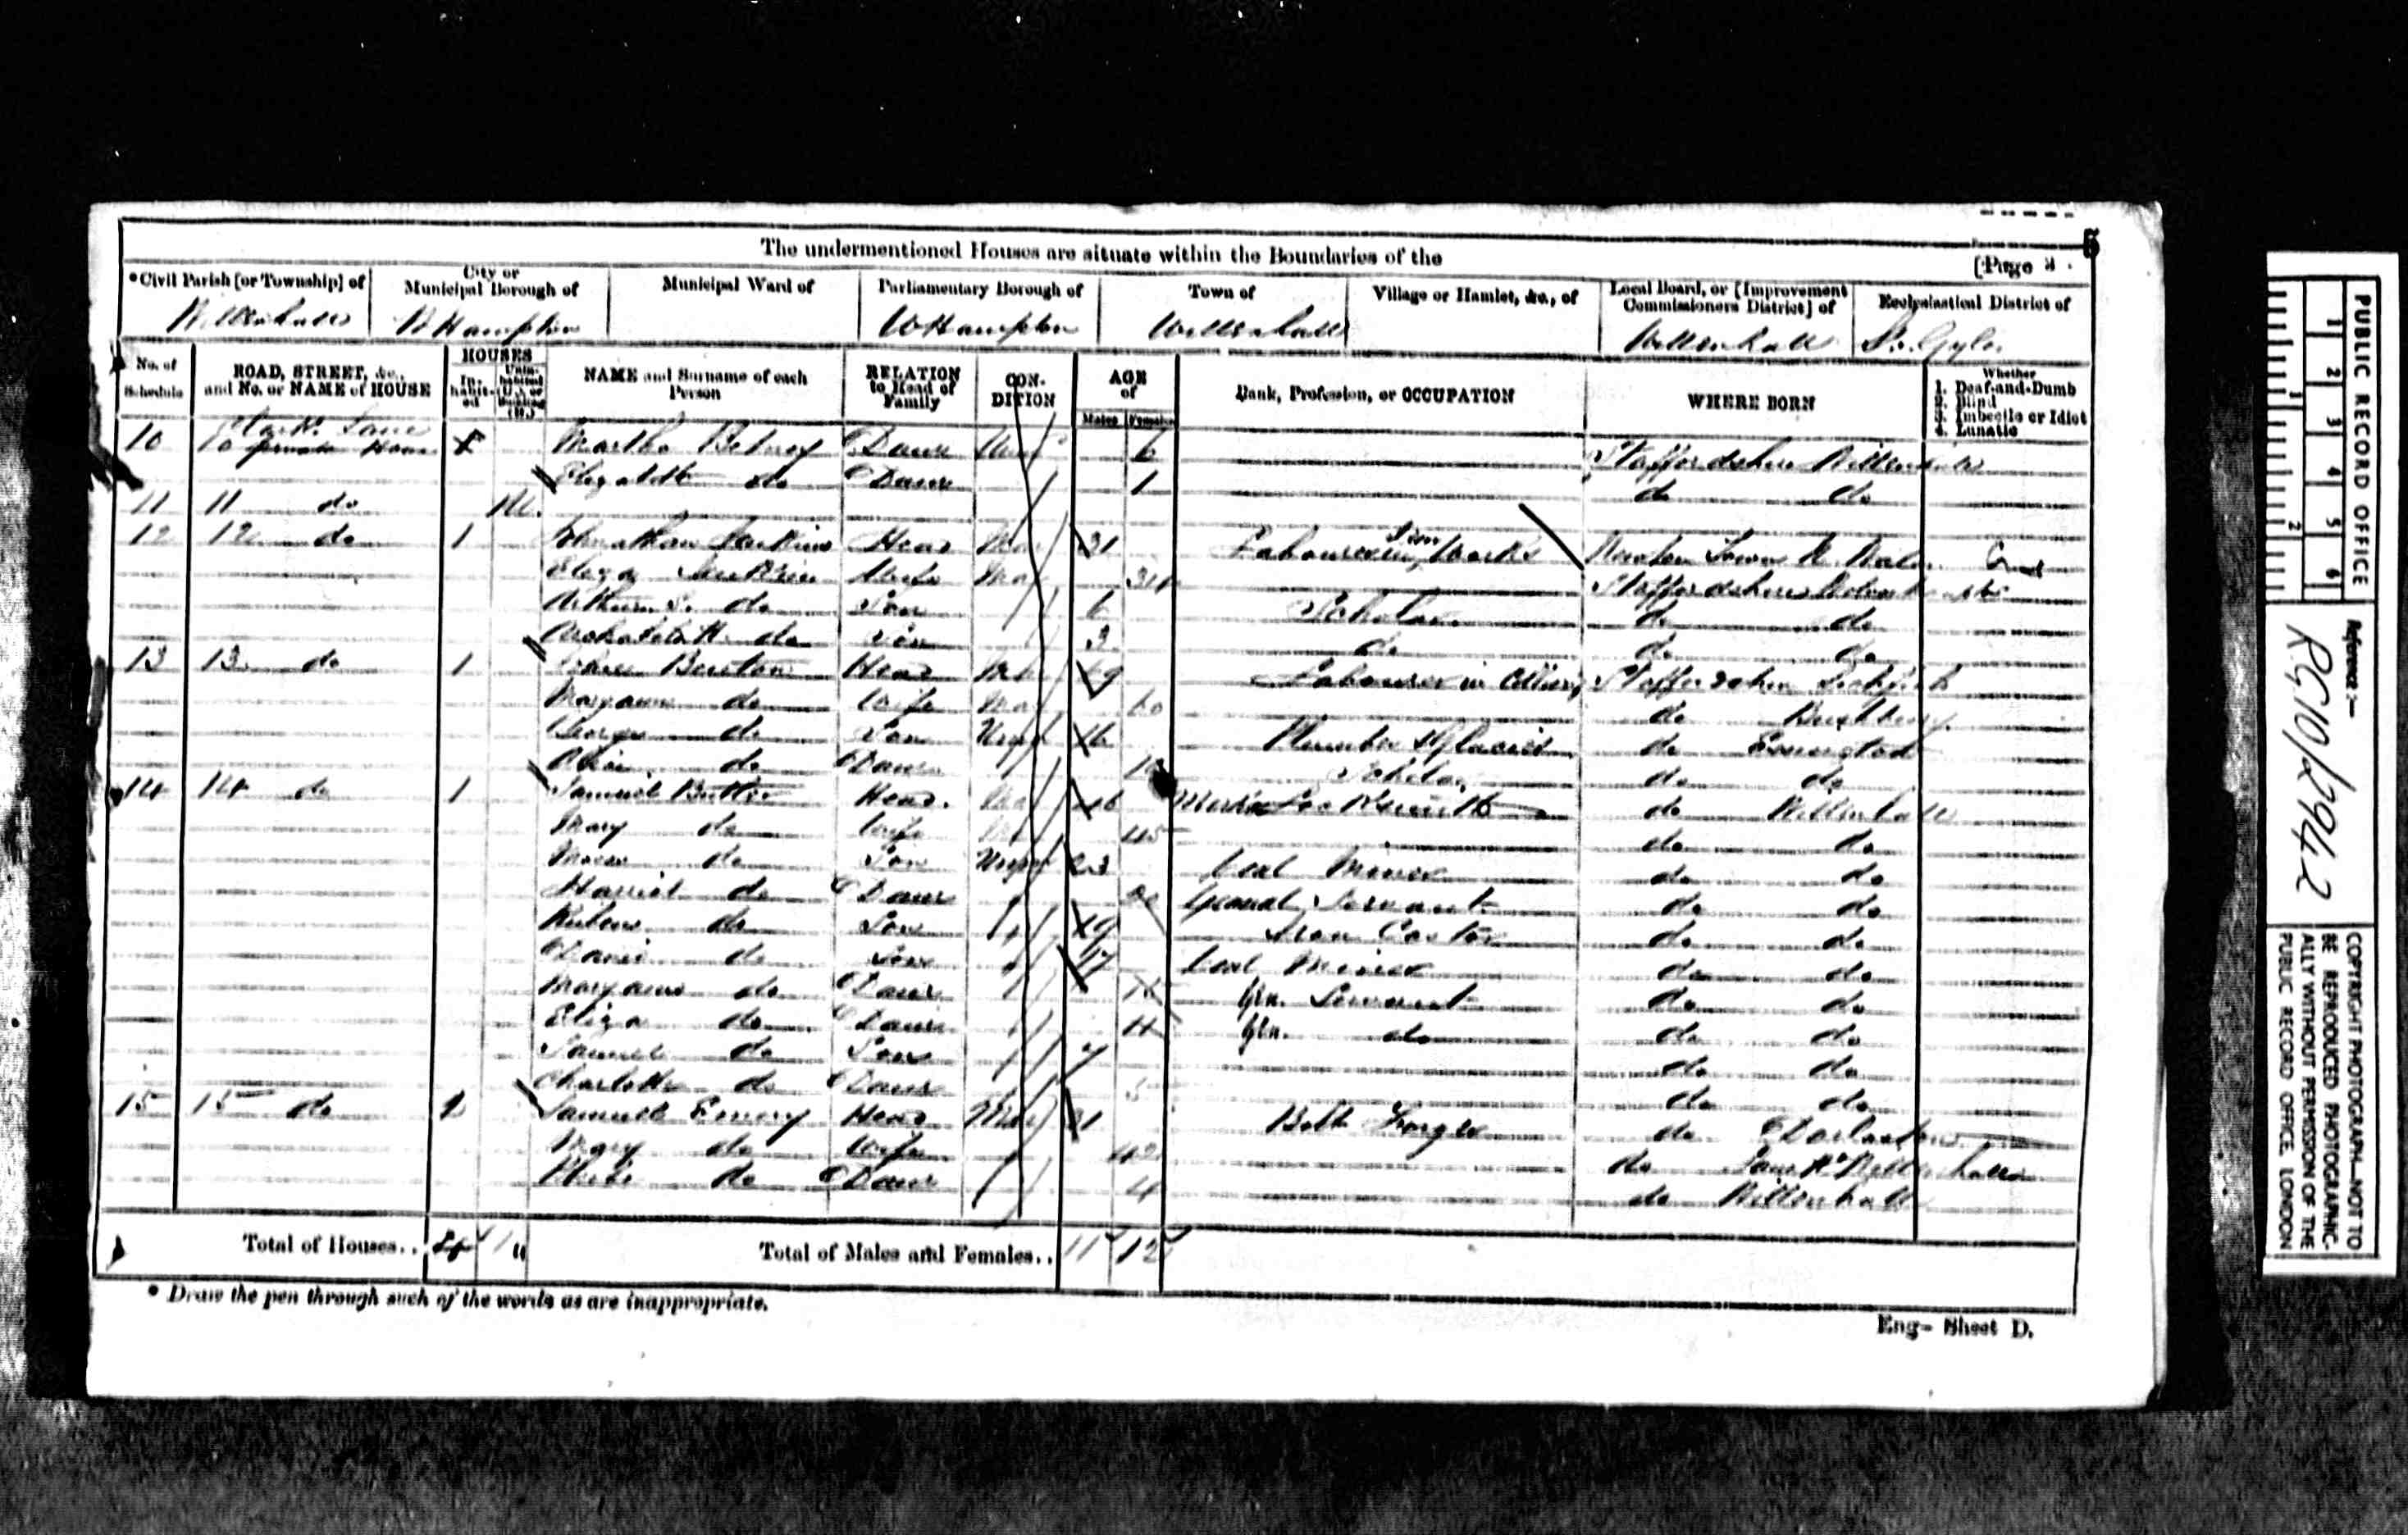 The undermentioned Houses are situate within the Boundaries of the
5
[Page 3
*Civil Parish [or Township] of
City or Municipal Borough of
Municipal Ward of
Parliamentary Borough of
Town of
Village or Hamlet, &c., of
Local Board, or [Improvement Commissioners District] of
Ecclesiastical District of
Willenhall
WHampton
WHampton
Willenhall
Willenhall
St. Gyles
No. of Schedule
ROAD, STREET, &c., and No. or NAME of HOUSE
HOUSES
Inhabited
Uninhabited (U.), or Building (B.)
NAME and Surname of each Person
RELATION to Head of Family
CONDITION
AGE of
Males
Females
Rank, Profession, or OCCUPATION
WHERE BORN
Whether
1. Deaf-and-Dumb
2. Blind
3. Imbecile or Idiot
4. Lunatic
Lane
10 10 private House Martha Daur 6 Staffordshire Willenhall
Elizabeth do Daur 1 do do
11 11 do
12 12 do 1 Johnathan Jenkins Head Mar 31 Labourer in Iron Works Newton Town
Eliza Jenkins Wife Mar 34 Staffordshire
Arthur S. do Son 6 Scholar do do
do Son 3 do do do
13 13 do 1 Burton Head Mar 69 Labourer in Colliery Staffordshire
Maryann do Wife Mar 60 do Bushbury
George do Son Unm 16 Plumber & Glacier do Essington
do Daur Scholar do do
14 14 do 1 Samuel Butler Head Mar 46 Locksmith do Willenhall
Mary do Wife 45 do do
Moses do Son Unm 23 Coal Miner do do
Harriet do Daur 20 General Servant do do
Ruben do Son 19 Iron Caster do do
Daniel do Son 17 Coal Miner do do
Maryann do Daur Gen. Servant do do
Eliza do Daur 11 Gen. do do do
Samuel do Son 7 do do
Charlotte do Daur 5 do do
15 15 do 1 Samuel Emery Head Mar 31 Bolt Forger do Darlaston
Mary do Wife 42 do Willenhall
Phebe do Daur 4 do Willenhall
Total of Houses..
Total of Males and Females.. 11 12
* Draw the pen through such of the words as are inappropriate.
Eng- Sheet D.
PUBLIC RECORD OFFICE
1 2 3 4 5 6
1 2
Reference :-
RG10/2942
COPYRIGHT PHOTOGRAPH—NOT TO
BE REPRODUCED PHOTOGRAPHIC-
ALLY WITHOUT PERMISSION OF THE
PUBLIC RECORD OFFICE, LONDON